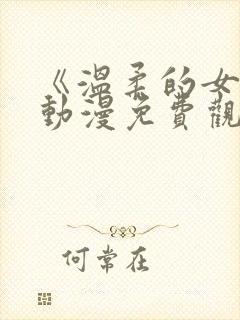 《溫柔的女
動漫免費觀
何常在